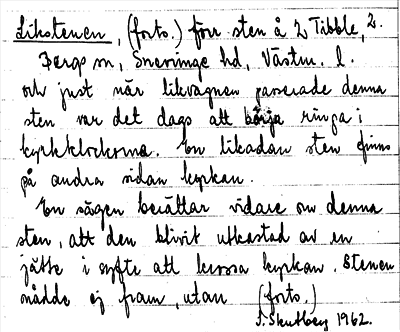 Likstenen, (forts.) förr sten å L Tibble, 2.
Bergs sn, Snevringe hd, Västm. l.
och just när likvagnen passerade denna
sten var det dags att börja ringa i
kyrkklockorna. En likadan sten finns
på andra sidan kyrkan.
En sägen berättar vidare om denna
sten, att den blivit utkastad av en
jätte i syfte att krossa kyrkan. Stenen
nådde ej fram, utan (forts.)
S. Skutberg 1962.